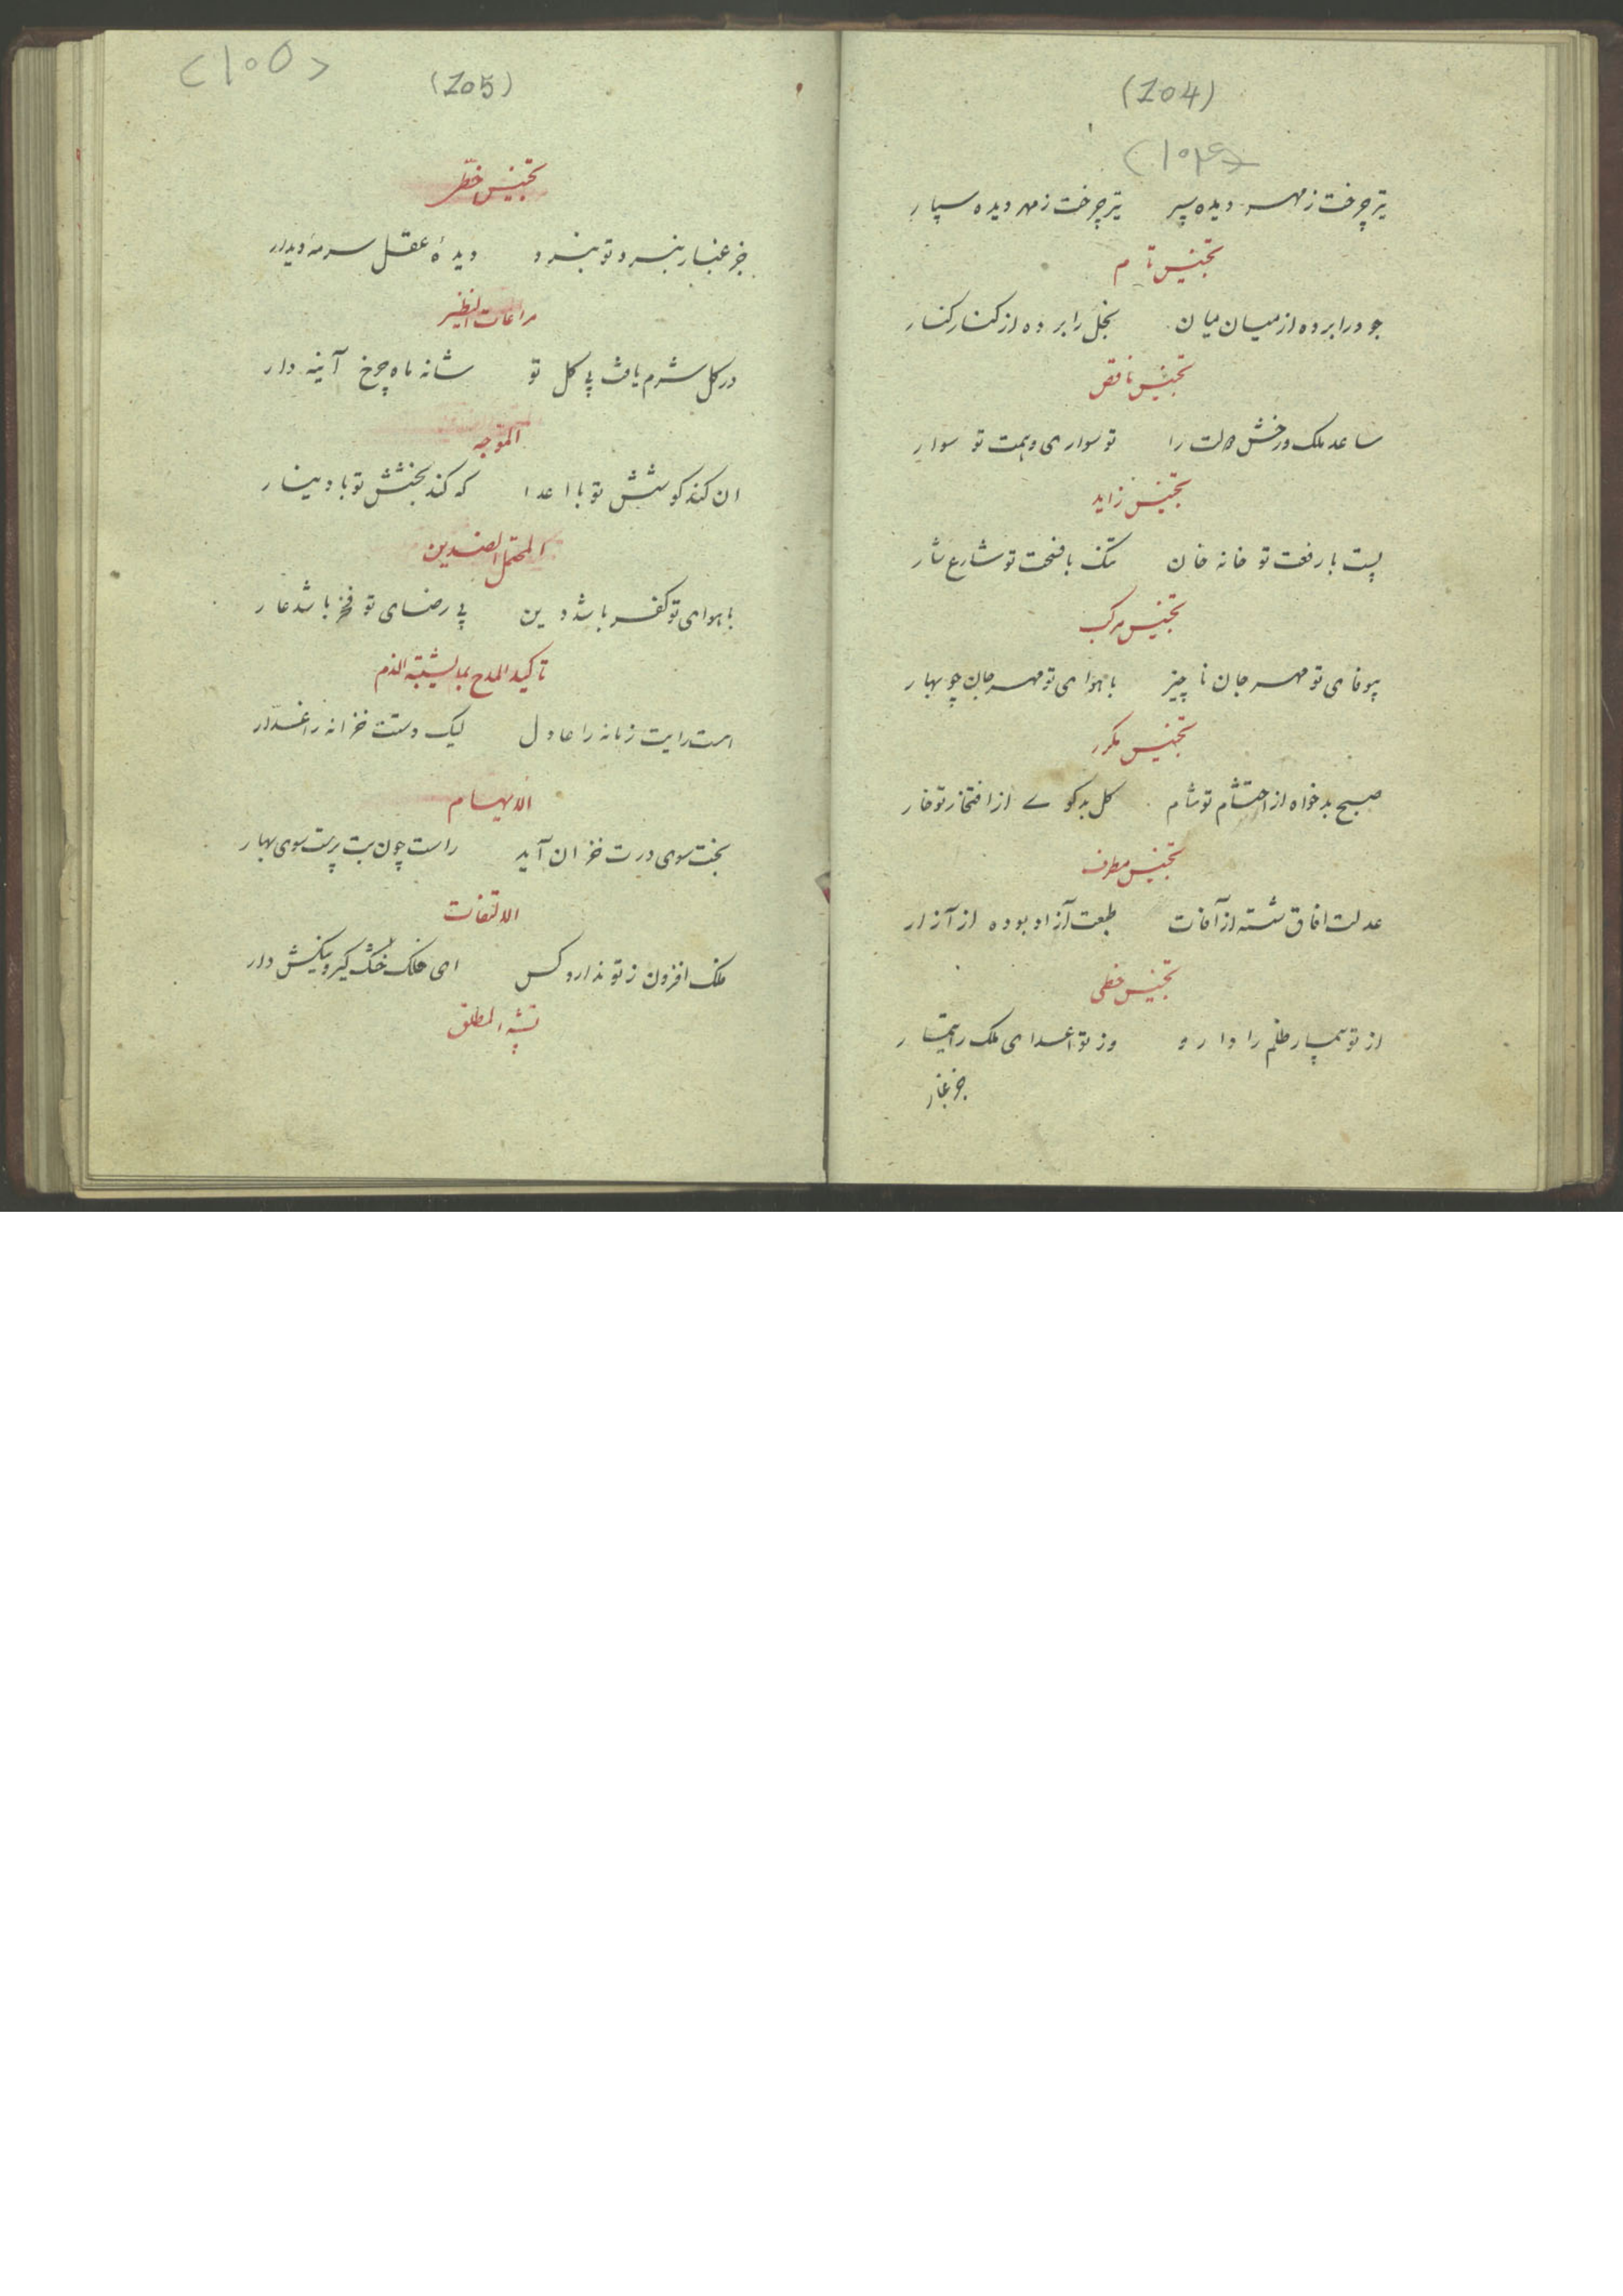 (104)
(۱۰۴)
تیر چرخت ز مهر دیده سپر تیر چرخت ز مهر دیده سپار
تجنیس تام
جود را برده از میان میان بخل را برده از کنار کنار
تجنیس ناقص
ساعد ملک و رخش دولت را تو سواری و همت تو سوار
تجنیس زاید
پست با رفعت تو خانه خان تنک با فسحت تو شارع شار
تجنیس مرکب
بیوفای تو مهر جان ناچیز با هوای تو مهرجان چو بهار
تجنیس مکرر
صبح بدخواه از احتشام تو شام کل بدکوی از افتخار تو خار
تجنیس مطرف
عدلت افاق شسته از آفات طبعت آزاد بوده از آزار
تجنیس خطی
از تو بیمار ظلم را دارو وز تو اعدای ملک را تیمار
جز غبار
(105)
<۱۰۵>
تجنیس خطی
جز غبار نبرد تو نبرد دیدهٔ عقل سرمهٔ دیدار
مراعات النظیر
در کل شرم یافت بی کل تو شانه ماه چرخ آینه دار
الموجه
ان کند کوشش تو با اعدا که کند بخشش تو با دینار
المحتمل الضدین
با هوای تو کفر باشد دین بی رضای تو فخر باشد عار
تاکید المدح بما یشبه الذم
هست رایت زمانه را عادل لیک دستت خزانه را غدار
الایهام
بخت سوی درت خزان آید راست چون بت پرست سوی بهار
الالتفات
ملک افزون ز تو ندارد کس ای فلک
تشبیه المطلق